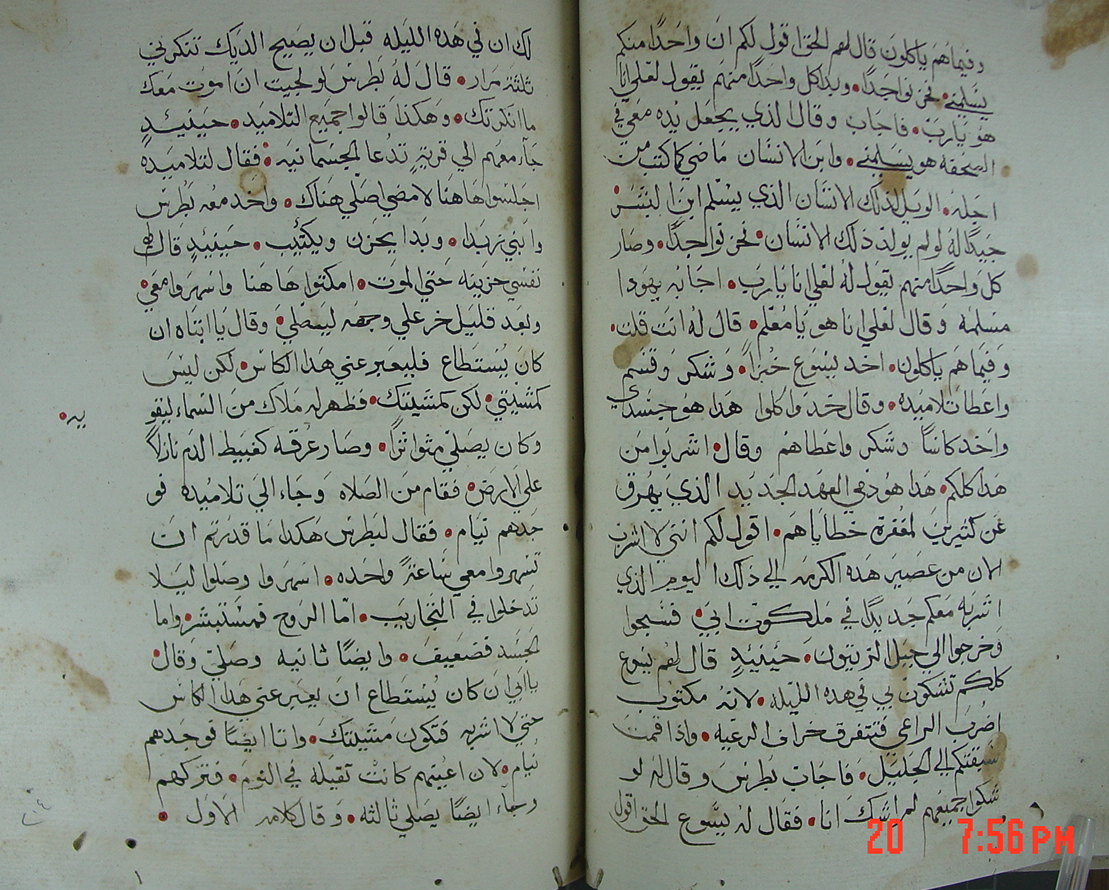 وفيما هم ياكلون قال لهم الحق اقول لكم ان واحدًا منكم
يسلمني • نحزنوا جدًا • وبدا كل واحدًا منهم يقول لعلي انا
هو يارب • فاجاب وقال الذي يجعل يده معي في
الصحفة هو يسلمني • وابن الانسان ماضي كما كتب من
اجله • الويل لذلك الانسان الذي يسلم ابن البشر •
جيدًا له لو لم يولد ذلك الانسان • نحزنوا جدًا • وصار
كل واحدًا منهم يقول له لعلي انا يارب • اجابه يهودا
مسلمه وقال لعلي انا هو يا معلم • قال له انت قلت •
وفيما هم ياكلون • اخد يسوع خبزًا • وشكر وقسم
واعطا تلاميده • وقال خدوا كلوا هدا هو جسدي
واخد كاسًا وشكر واعطاهم وقال • اشربوا من
هدا كلكم • هدا هو دمي العهد الجديد الذي يهرق
عن كثيرين لمغفرة خطاياهم • اقول لكم انني لا اشرب
الان من عصير هده الكرمه الي ذلك اليوم الذي
اشربه معكم جديدًا في ملكوت ابي • فسبحوا
وخرجوا الي جبل الزيتون • حينيدٍ قال لهم يسوع
كلكم تشكون بي في هده الليله • لانه مكتوب
اضرب الراعي فتتفرق خراف الرعيه • واذا قمت
سبقتكم الي الجليل • فاجاب بطرس وقال له لو
شكوا جميعهم لم اشك انا • فقال له يسوع الحق اقول
لك ان في هده الليله قبل ان يصيح الديك تنكرني
ثلثة مرار • قال له بطرس لو لجيت ان اموت معك
ما انكرتك • وهكدا قالوا جميع التلاميد • حينيدٍ
جآء معهم الي قرية تدعا الجسمانيه • فقال لتلاميده
اجلسوا هاهنا لامضي اصلي هناك • واخد معه بطرس
وابني زبدا • وبدا يحزن ويكتئب • حينيدٍ قال لهم
نفسي حزينه حتي الموت • امكثوا هاهنا واسهروا معي •
وبعد قليل خر علي وجهه ليصلي • وقال يا ابتاه ان
كان يستطاع فليعبر عني هدا الكاس • لكن ليس
كمشيتي • لكن كمشيتك • فظهر له ملاك من السماء ليقو
يه •
وكان يصلي متواترًا • وصار عرقه كعبيط الدم نازلاً
علي الارض • فقام من الصلاه وجاء الي تلاميده فو
جدهم نيام • فقال لبطرس هكدا ما قدرتم ان
تسهروا معي ساعةً واحده • اسهروا وصلوا ليلا
تدخلوا في التجاريب • امّا الروح فمستبشر • واما
الجسد فضعيف • وايضًا ثانيه وصلي وقال •
يا ابي ان كان يستطاع ان يعبر عني هدا الكاس
حتي لا اشربه فتكون مشيتك • واتا ايضًا فوجدهم
نيام • لان اعينهم كانت ثقيله في النوم • فتركهم
وجاء ايضًا يصلي ثالثه • وقال كلامه الاول •
20 7:56 PM